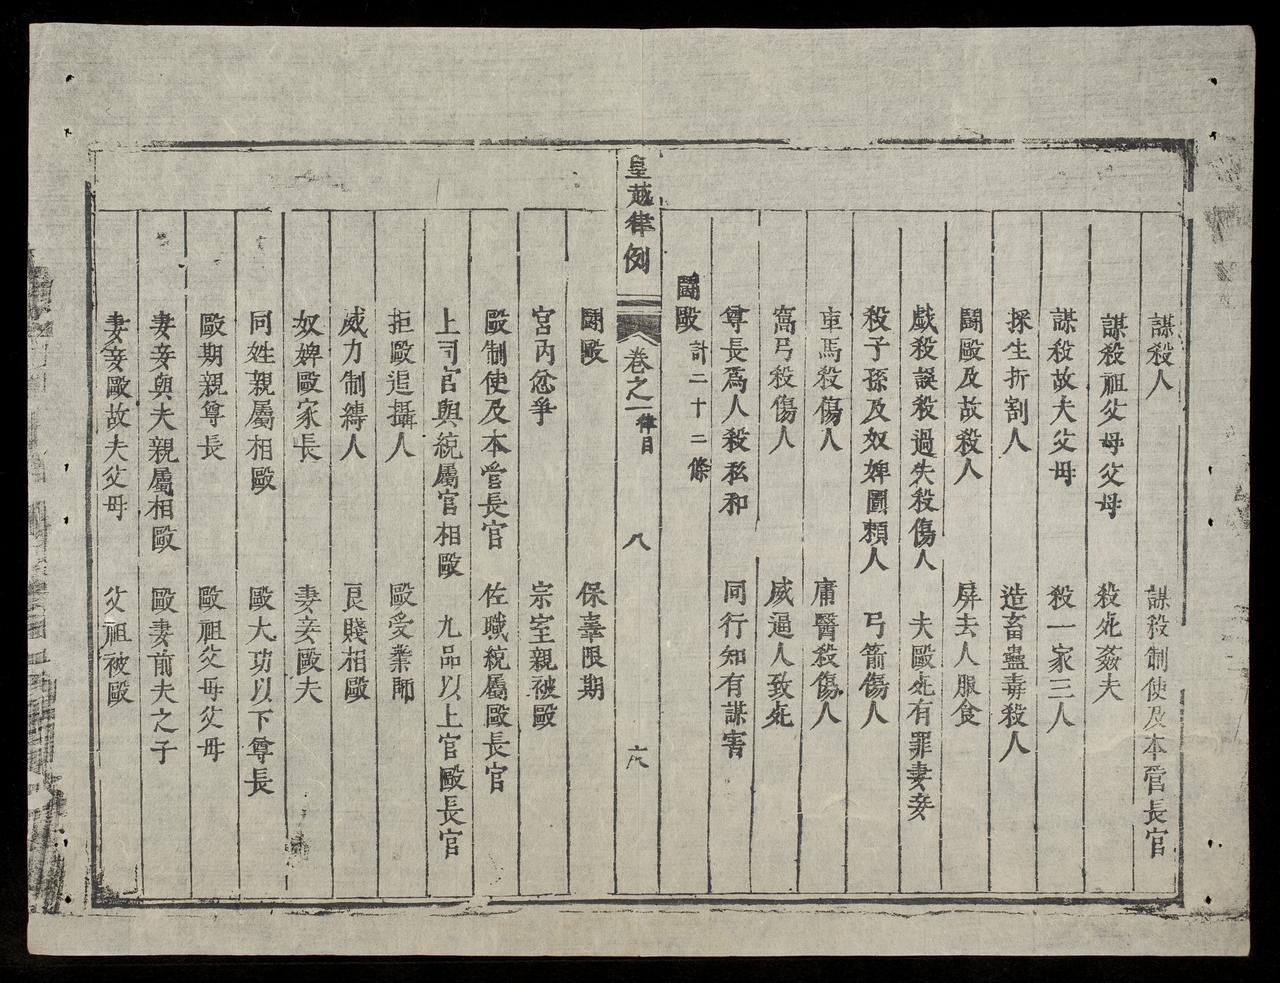 謀殺人　謀殺制使及本管長官
謀殺祖父母父母　殺死姦夫
謀殺故夫父母　殺一家三人
採生折割人　造畜蠱毒殺人
鬪毆及故殺人　屏去人服食
戲殺誤殺過失殺傷人　夫毆死有罪妻妾
殺子孫及奴婢圖賴人　弓箭傷人
車馬殺傷人　庸醫殺傷人
窩弓殺傷人　威逼人致死
尊長爲人殺私和　同行知有謀害
鬪毆計二十二條
皇越律例　卷之一律目　八　六
鬪毆　保辜限期
宮內忿爭　宗室親被毆
毆制使及本管長官　佐職統屬毆長官
上司官與統屬官相毆　九品以上官毆長官
拒毆追攝人　毆受業師
威力制縛人　良賤相毆
奴婢毆家長　妻妾毆夫
同姓親屬相毆　毆大功以下尊長
毆期親尊長　毆祖父母父母
妻妾與夫親屬相毆　毆妻前夫之子
妻妾毆故夫父母　父祖被毆